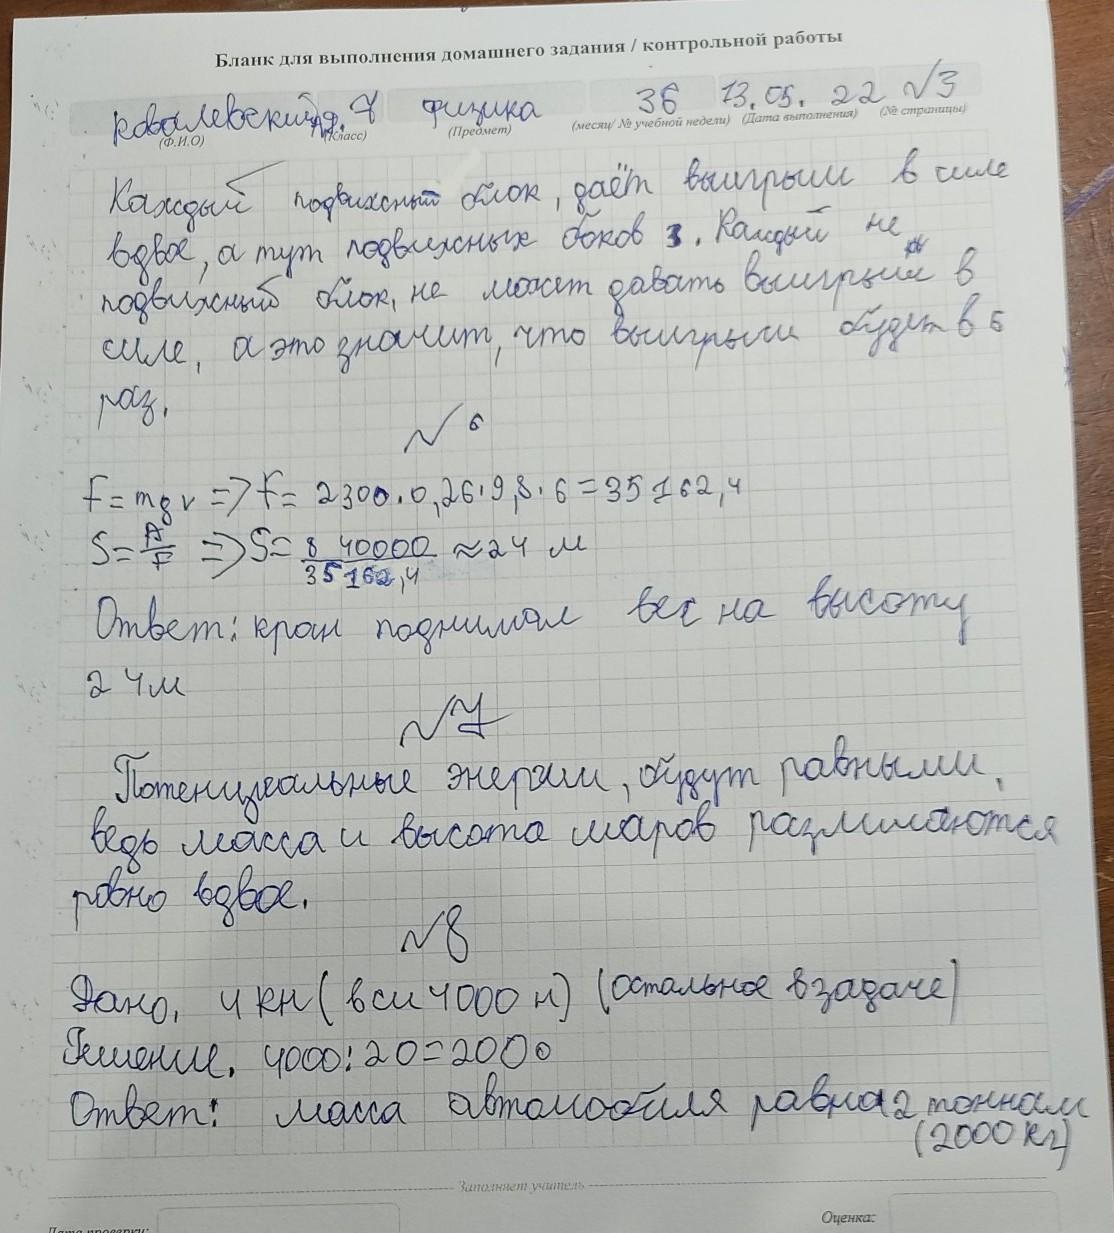 Бланк для выполнения домашнего задания / контрольной работы
Ковалевский 7 физика 36 13.05.22 √3
(Ф.И.О) (Класс) (Предмет) (месяц/ № учебной недели) (Дата выполнения) (№ страницы)
Каждый подвижный блок, даёт выигрыш в силе
вдвое, а тут подвижных боков 3. Каждый не
подвижный блок, не может давать выигрыш в
силе, а это значит, что выигрыш будет в 6
раз.
№6
F=mgv=>F= 2300.0,26.9,8.6=35162,4
S=A/F =>S= 840000/35162,4 ≈24 м
Ответ: кран поднимал вес на высоту
24м
№7
Потенциальные энергии, будут равными,
ведь масса и высота шаров различаются
ровно вдвое.
№8
Дано, 4кн (в си 4000 н) (остальное в задаче)
Решение. 4000:20=2000
Ответ: масса автомобиля равна 2 тоннам
(2000 кг)
Заполняет учитель
Дата проверки:
Оценка: